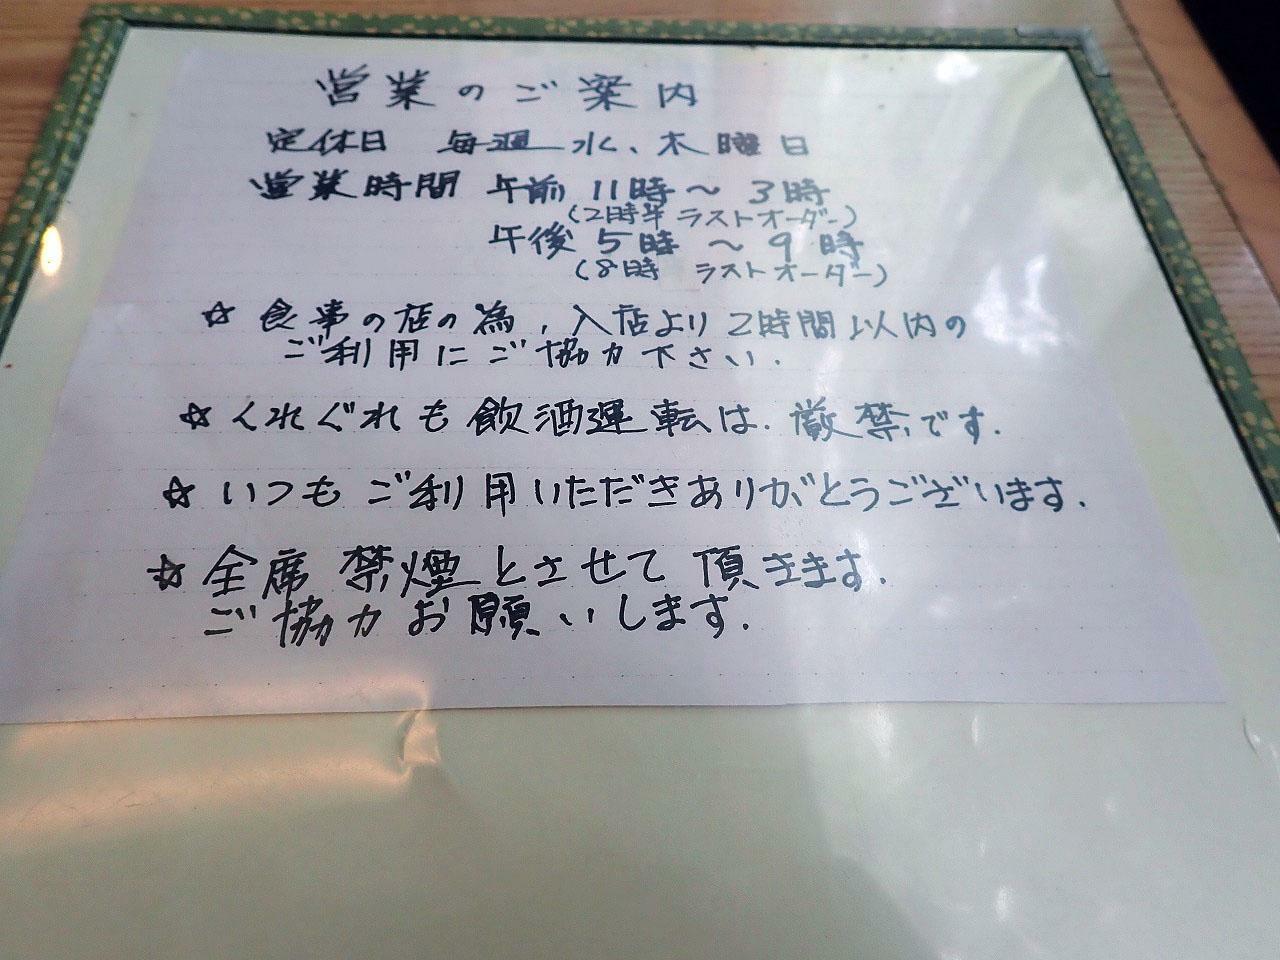 営業のご案内
定休日 毎週 水、木曜日
営業時間 午前 11時〜3時
(2時半 ラストオーダー)
午後 5時〜9時
(8時 ラストオーダー)
☆ 食事の店の為、入店より2時間以内の
ご利用にご協力下さい.
☆ くれぐれも飲酒運転は.厳禁です.
☆ いつもご利用いただきありがとうございます.
☆ 全席禁煙とさせて頂きます.
ご協力お願いします.